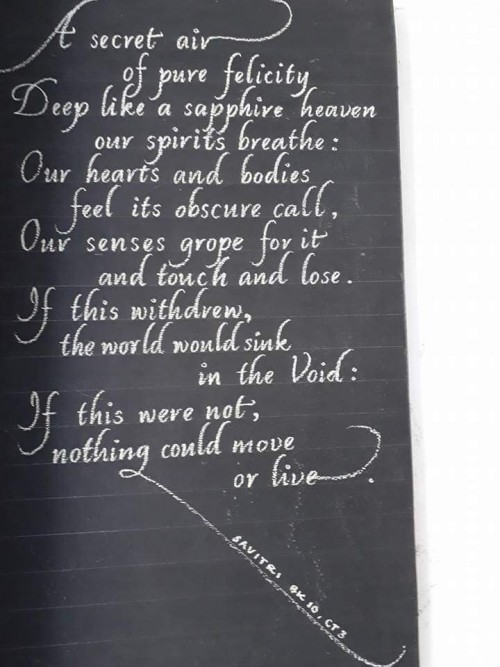 A secret air
of pure felicity
Deep like a sapphire heaven
our spirits breathe:
Our hearts and bodies
feel its obscure call,
Our senses grope for it
and touch and lose.
If this withdrew,
the world would sink
in the Void:
If this were not,
nothing could move
or live.
SAVITRI BK 10, CT 3